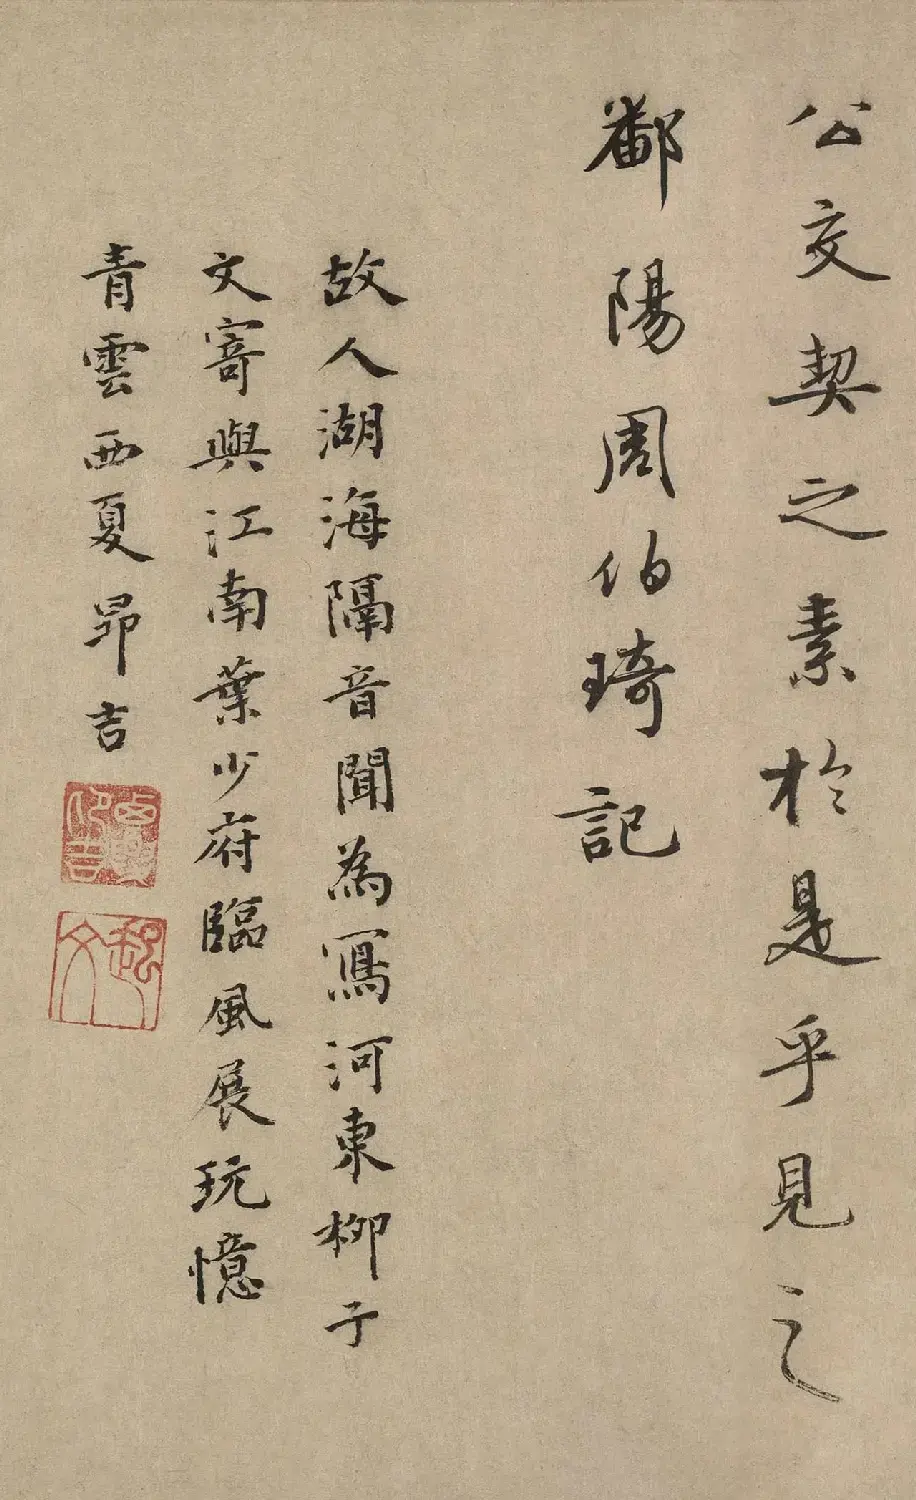 公交契之素於是乎見之
鄱陽周伯琦記
故人湖海隔音聞為寫河東柳子
文寄與江南葉少府臨風展玩憶
青雲西夏昂吉
西夏昂吉
起文